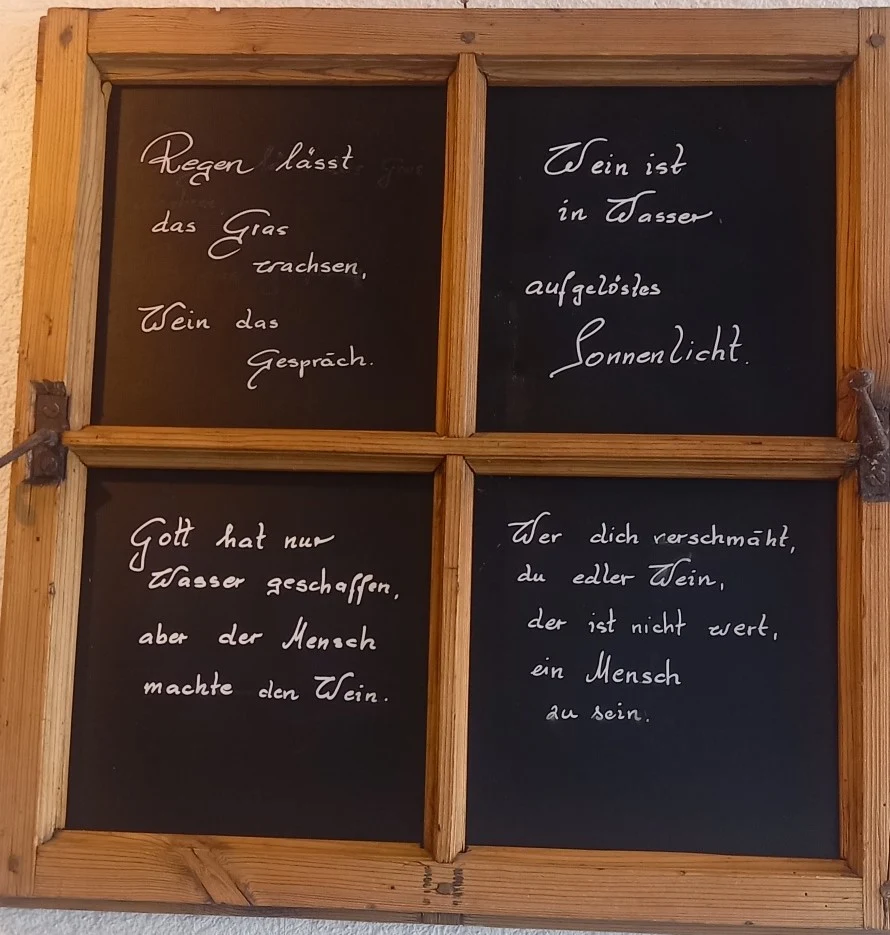 Regen lässt
das Gras
wachsen,
Wein das
Gespräch.
Wein ist
in Wasser
aufgelöstes
Sonnenlicht.
Gott hat nur
Wasser geschaffen,
aber der Mensch
machte den Wein.
Wer dich verschmäht,
du edler Wein,
der ist nicht wert,
ein Mensch
zu sein.